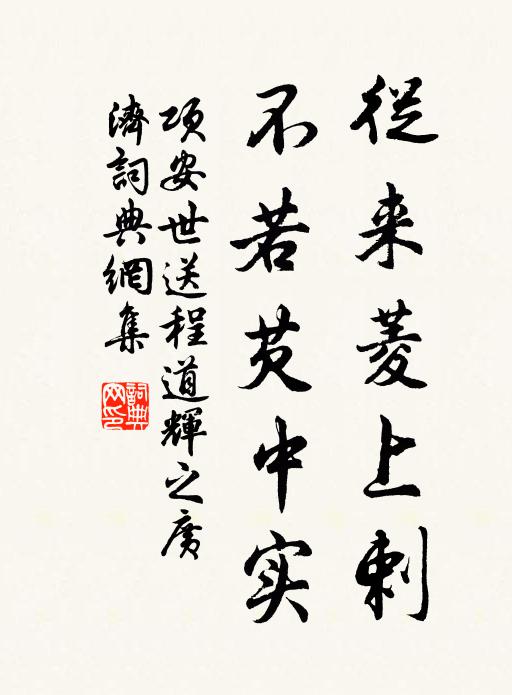 從来菱上刺
不若芡中实
項安世送程道輝之廣
濟詞典網集
詞典
网印